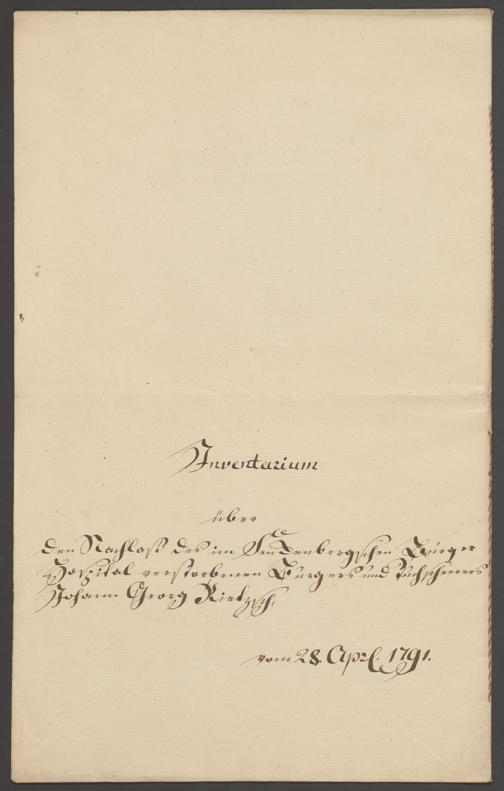 Inventarium
über
den Nachlaß des im Senckenbergischen Bürger
Hospital verstorbenen Burgers und Tuchscherers
Johann Georg
vom 28. Apr. 1791.